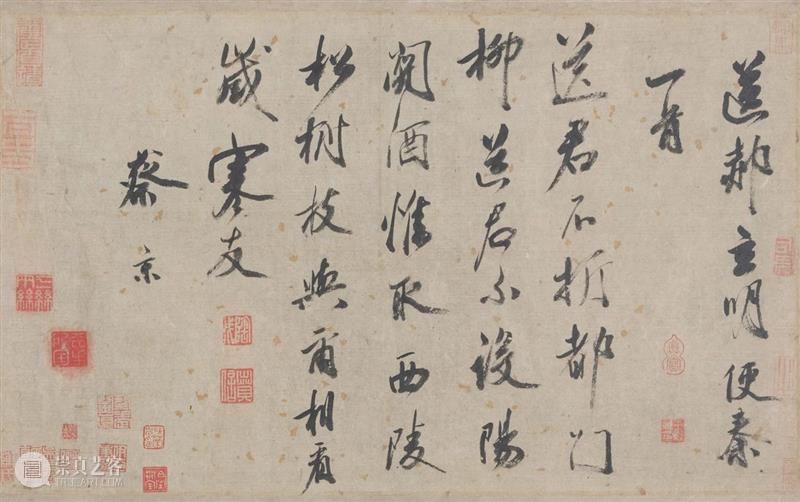 送郝玄明使秦
一首
送君不折都門
柳送君不設陽
關酒惟取西陵
松樹枝與爾相看
歲寒友
蔡京
崇真艺客